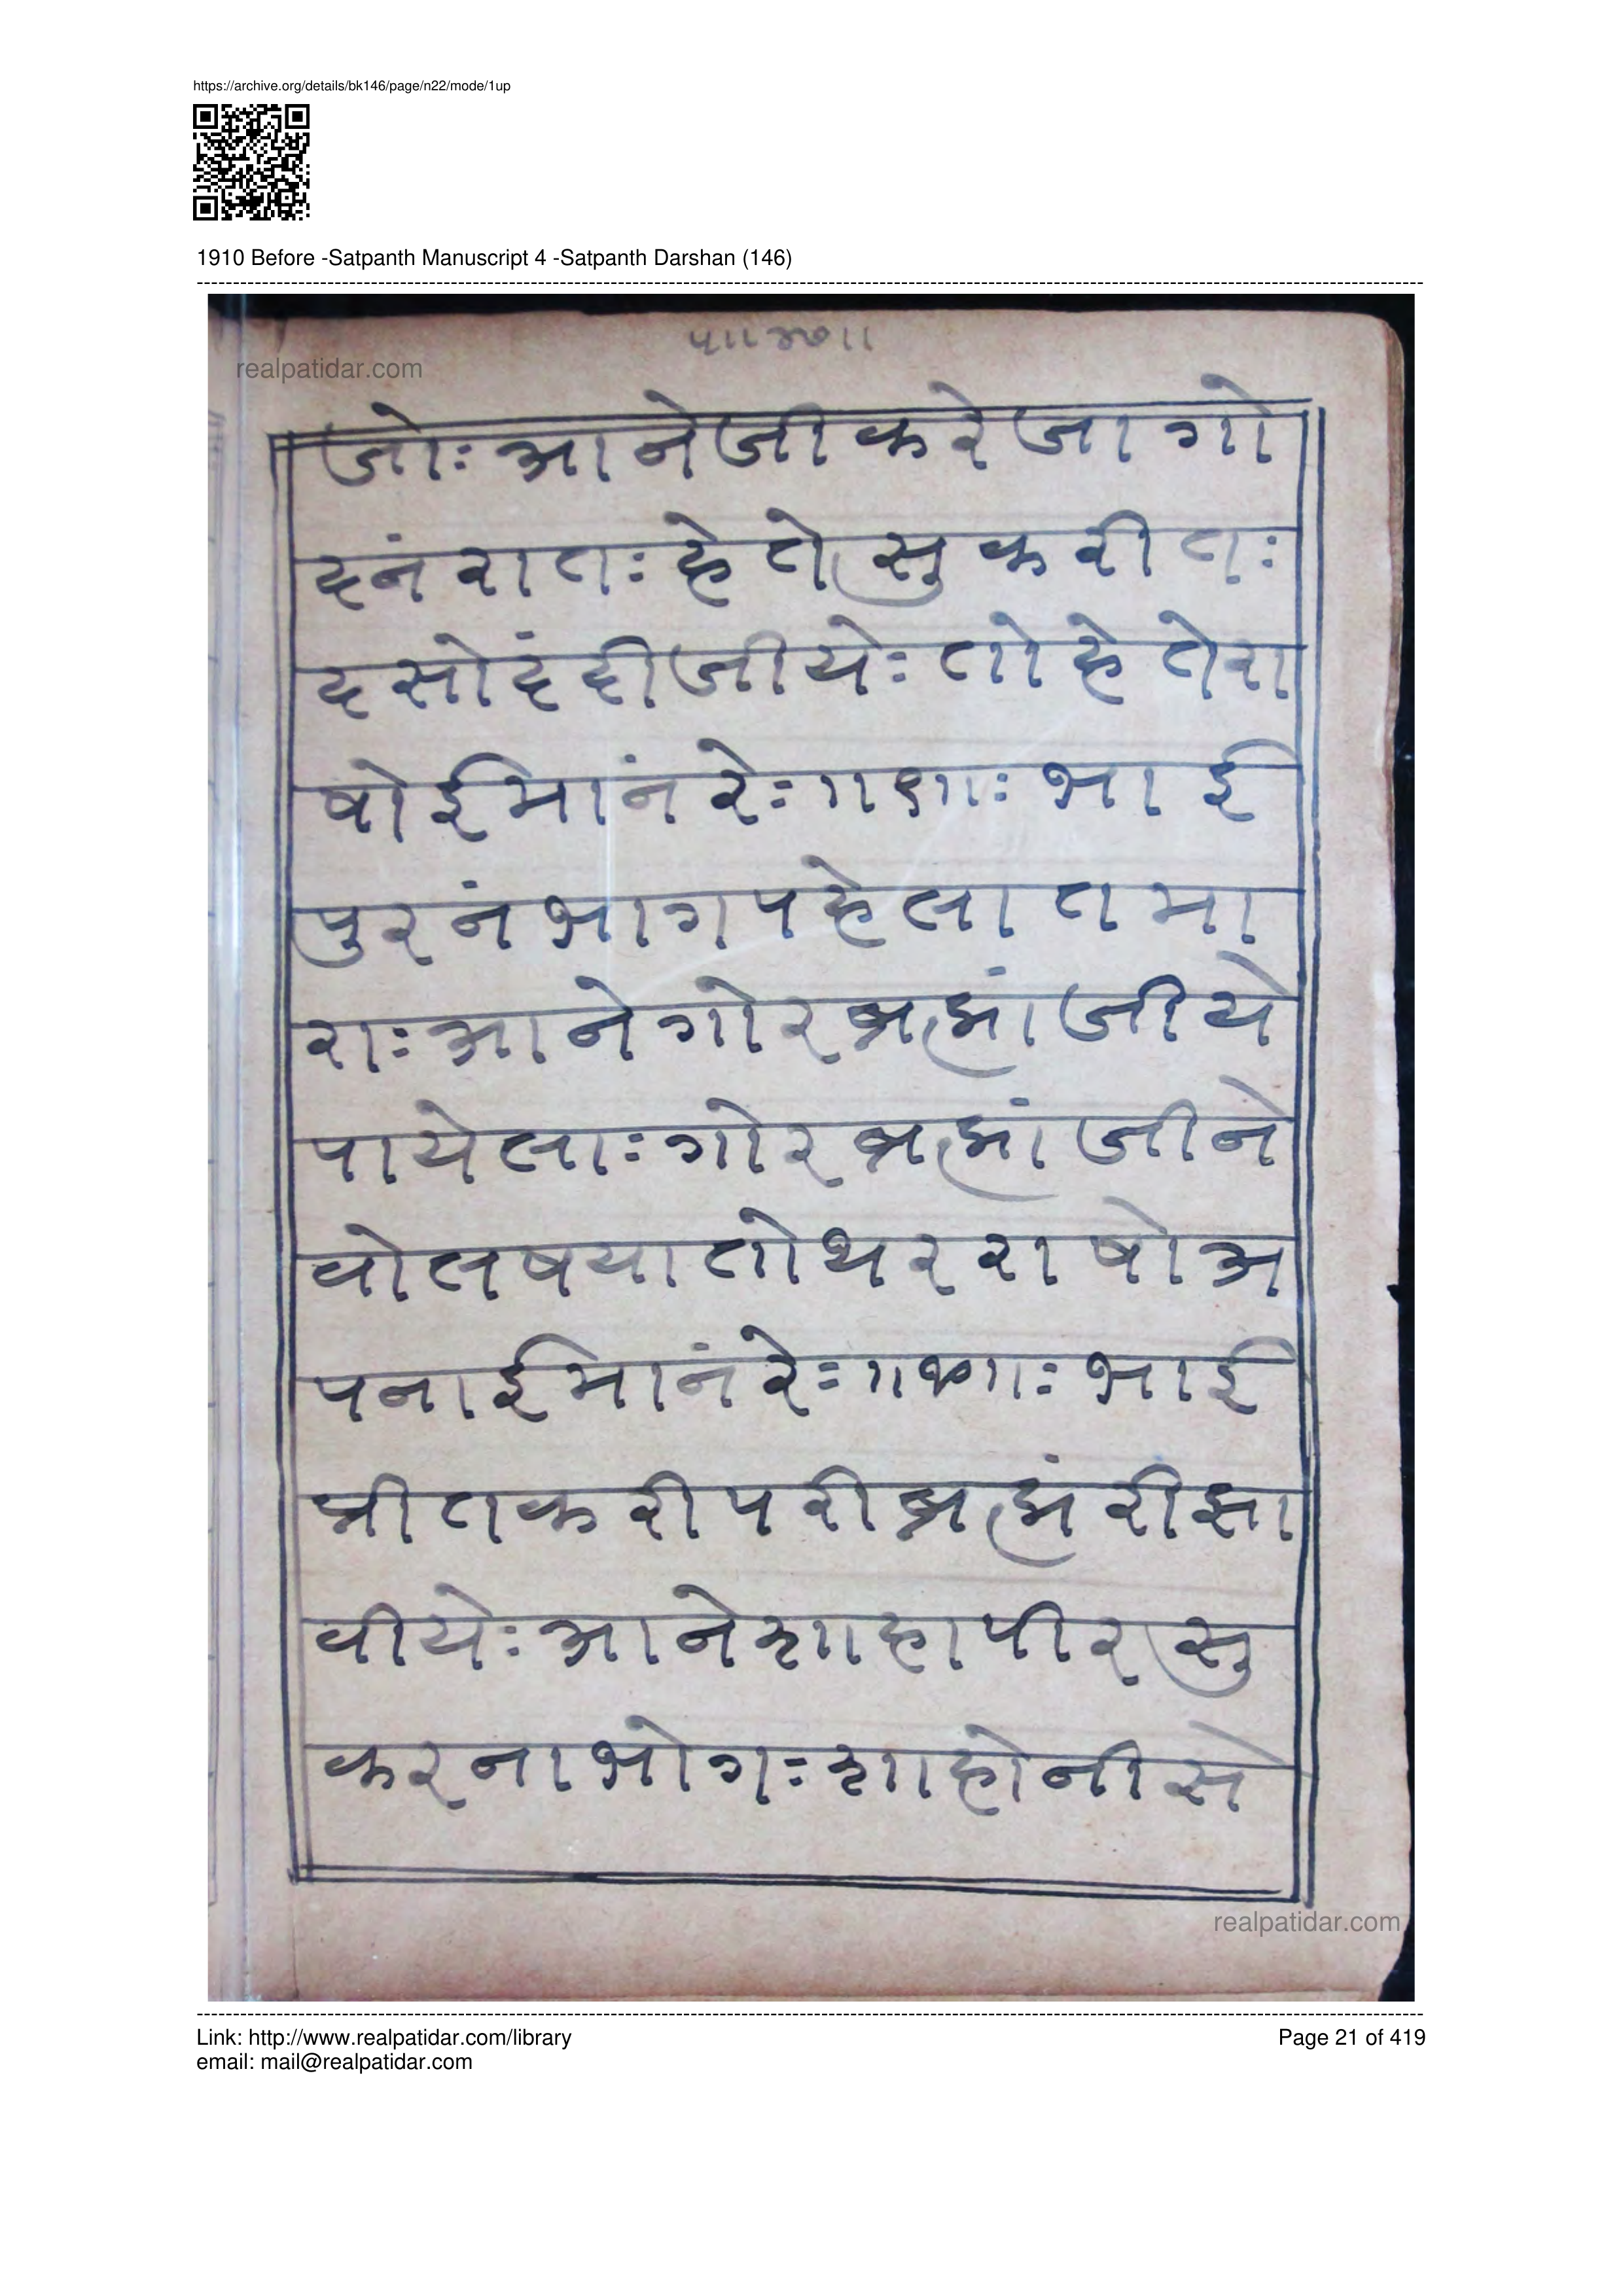 https://archive.org/details/bk146/page/n22/mode/1up
1910 Before -Satpanth Manuscript 4 -Satpanth Darshan (146)
realpatidar.com
जोः आनेजीकरेजागो
दनंरातःहेतेसुकरीतः
दसोदंदीजीयेःतोहेतेरा
षोईमांनरेः॥९॥ःभाई
पुरनंभागपहेलातमा
राःआनेगोरब्रह्मांजीये
पायेलाःगोरब्रह्मांजीने
वोलषयातोथरराषोअ
पनाईमांनरेः॥१०॥ःभाई
प्रीतकरीपरीब्रह्मंरीझा
वीयेःआनेशाहापीरसु
करनाभोगःशाहोनीसे
realpatidar.com
Link: http://www.realpatidar.com/library
email: mail@realpatidar.com
Page 21 of 419